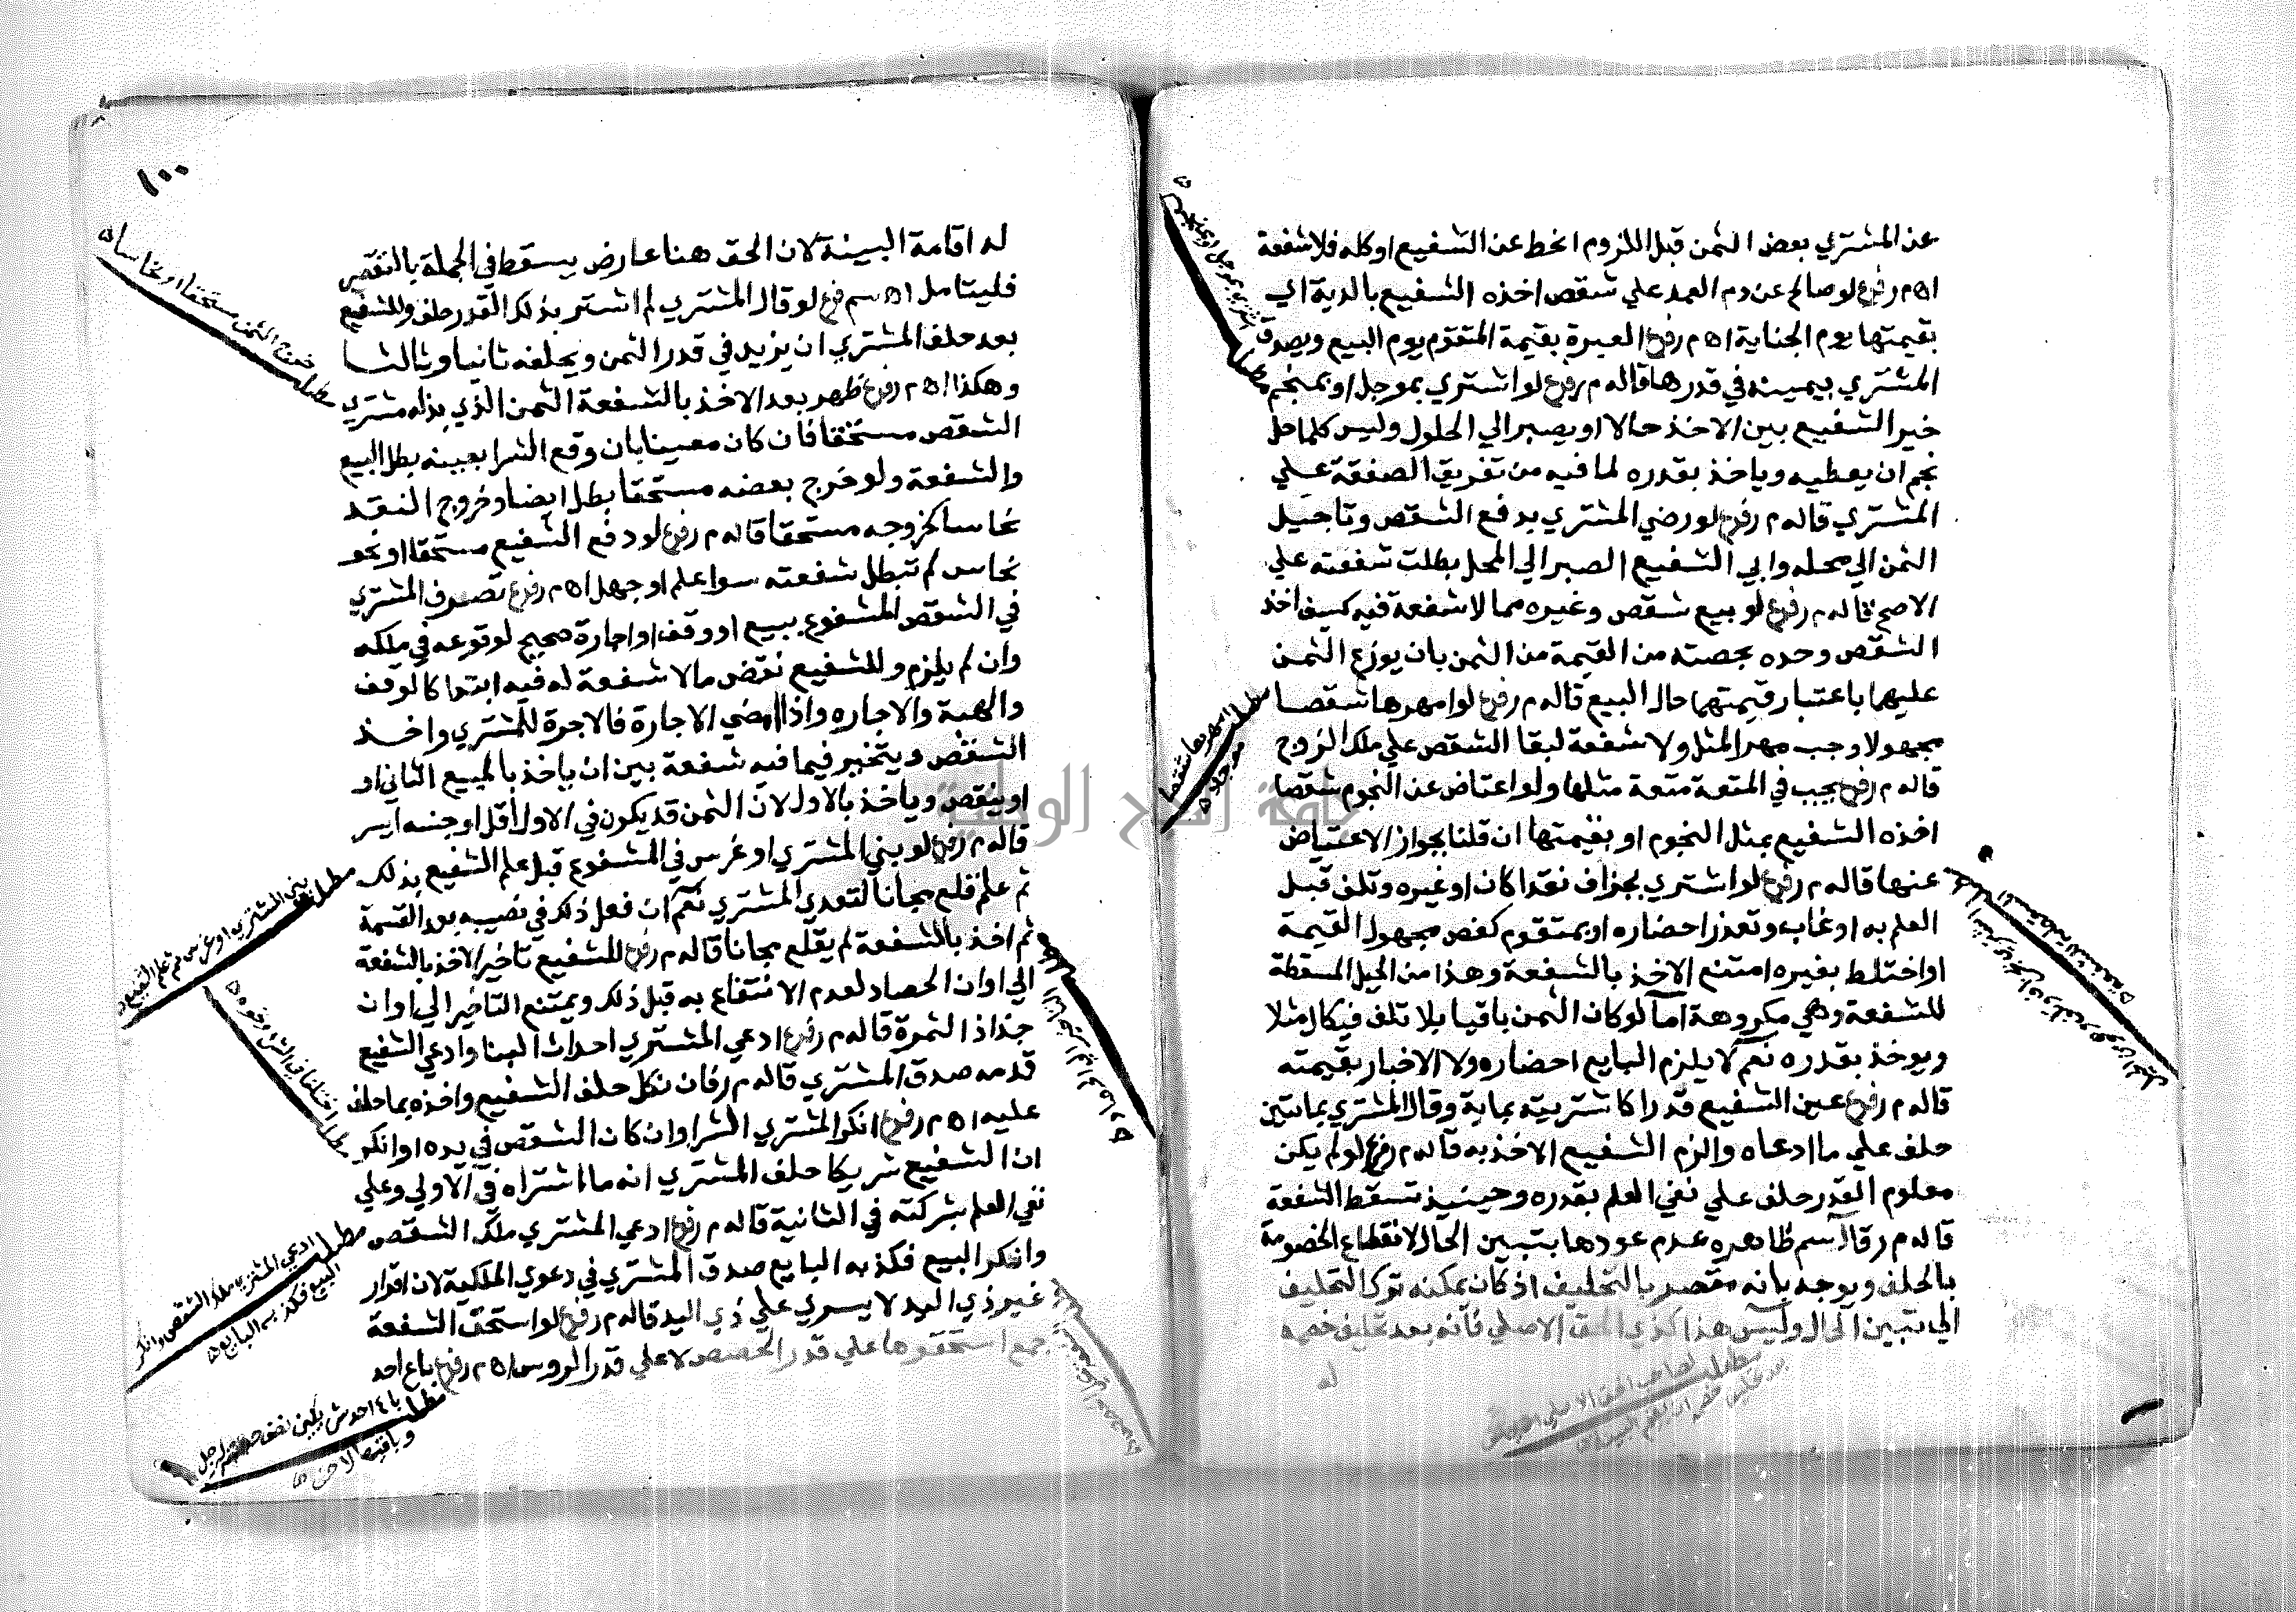 عن المشتري بعض الثمن قبل اللزوم انحط عن الشفيع او كله فلا شفعة
اه م ر فرع لو صالح عن دم العمد علي شقص اخذه الشفيع بالدية اي
بقيمتها يوم الجناية اه م ر فرع العبرة بقيمة المتقوم يوم البيع ويصدق
المشتري بيمينه في قدرها قاله م ر فرع لو اشتري بموجل او بمنجم
خير الشفيع بين الاخذ حالا او يصبر الي الحلول وليس كلما حل
نجم ان يعطيه وياخذ بقدره لما فيه من تفريق الصفقة علي
المشتري قاله م ر فرع لو رضي المشتري بدفع الشقص وتاجيل
الثمن الي محله وابي الشفيع الصبر الي المحل بطلت شفعته علي
الاصح قاله م ر فرع لو بيع شقص وغيره مما لا شفعة فيه كسيف اخذ
الشقص وحده بحصته من القيمة من الثمن بان يوزع الثمن
عليهما باعتبار قيمتهما حال البيع قاله م ر فرع لو امهرها شقصا
مجهولا وجب مهر المثل ولا شفعة لبقا الشقص علي ملك الزوج
قاله م ر فرع يجب في المتعة متعة مثلها ولو اعتاض عن النجوم شقصا
اخذه الشفيع بمثل النجوم او بقيمتها ان قلنا بجواز الاعتياض
عنها قاله م ر فرع لو اشتري بجزاف نقدا كان او غيره وتلف قبل
العلم به او غاب وتعذر احضاره او بمتقوم كفص مجهول القيمة
او اختلط بغيره امتنع الاخذ بالشفعة وهذا من الحيل المسقطة
للشفعة وهي مكروهة اما لو كان الثمن باقيا بلا تلف فيكال مثلا
ويوخذ بقدره نعم لا يلزم البايع احضاره ولا الاخبار بقيمته
قاله م ر فرع عين الشفيع قدرا كاشتريته بماية وقال المشتري بمايتين
حلف علي ما ادعاه والزم الشفيع الاخذ به قاله م ر فرع لو لم يكن
معلوم القدر حلف علي نفي العلم بقدره وحينيذ تسقط الشفعة
قاله م ر قال سم ظاهره عدم عودها بتبين الحال لانقطاع الخصومة
بالحلف ويوجه بانه مقصر بالتحليف اذ كان يمكنه ترك التحليف
الي تبين الحال وليس هذا كذي الحق الاصلي فانه بعد تحليف خصمه
له
مطلب اشتري بموجل او بمنجم
مطلب امهرها شقصا
مجهولا
١٠٠
له اقامة البينة لان الحق هنا عارض يسقط في الجملة بالنقص
فليتامل اه سم فرع لو قال المشتري لم اشتر بذلك القدر حلف وللشفيع
بعد حلف المشتري ان يزيد في قدر الثمن ويحلفه ثانيا وثالثا
وهكذا اه م ر فرع ظهر بعد الاخذ بالشفعة الثمن الذي بذله مشتري
الشقص مستحقا فان كان معينا بان وقع الشرا بعينه بطل البيع
والشفعة ولو خرج بعضه مستحقا بطل ايضا وخروج النقد
نحاسا كخروجه مستحقا قاله م ر فرع لو دفع الشفيع مستحقا او نحو
نحاس لم تبطل شفعته سوا علم او جهل اه م ر فرع تصرف المشتري
في الشقص المشفوع ببيع او وقف او اجارة صحيح لوقوعه في ملكه
وان لم يلزم وللشفيع نقض ما لا شفعة له فيه ابتدا كالوقف
والهبة والاجاره واذا امضي الاجارة فالاجرة للمشتري واخذ
الشقص ويتخير فيما فيه شفعة بين ان ياخذ بالمبيع الثاني او
او ينقص وياخذ بالاول لان الثمن قد يكون في الاول اقل او جنسه ايسر
قاله م ر فرع لو بني المشتري او غرس في المشفوع قبل علم الشفيع بذلك
ثم علم قلع مجانا لتعدي المشتري نعم ان فعل ذلك في نصيبه بعد القسمة
ثم اخذ بالشفعة لم يقلع مجانا قاله م ر فرع للشفيع تاخير الاخذ بالشفعة
الي اوان الحصاد لعدم الانتفاع به قبل ذلك ويمتنع التاخير الي اوان
جذاذ الثمرة قاله م ر فرع ادعي المشتري احداث البنا وادعي الشفيع
قدمه صدق المشتري قاله م ر فان نكل حلف الشفيع واخذه بما حلف
عليه اه م ر فرع انكر المشتري الشرا وان كان الشقص في يده او انكر
ان الشفيع شريكا حلف المشتري انه ما اشتراه في الاولي وعلي
نفي العلم بشركته في الثانية قاله م ر فرع ادعي المشتري ملك الشقص
وانكر البيع فكذبه البايع صدق المشتري في دعوي الملكية لان اقرار
غير ذي اليد لا يسري علي ذي اليد قاله م ر فرع لو استحق الشفعة
جمع استحقوها علي قدر الحصص لا علي قدر الروس اه م ر فرع باع احد
مطلب خرج الثمن مستحقا او نحاسا
مطلب بني المشتري او غرس ثم علم الشفيع
مطلب اختلفا في الشرا ونحوه
مطلب ادعي المشتري ملك الشقص وانكر
البيع فكذبه البايع
مطلب باع احد شريكين نصف حصته لرجل
وباقيها لاخر